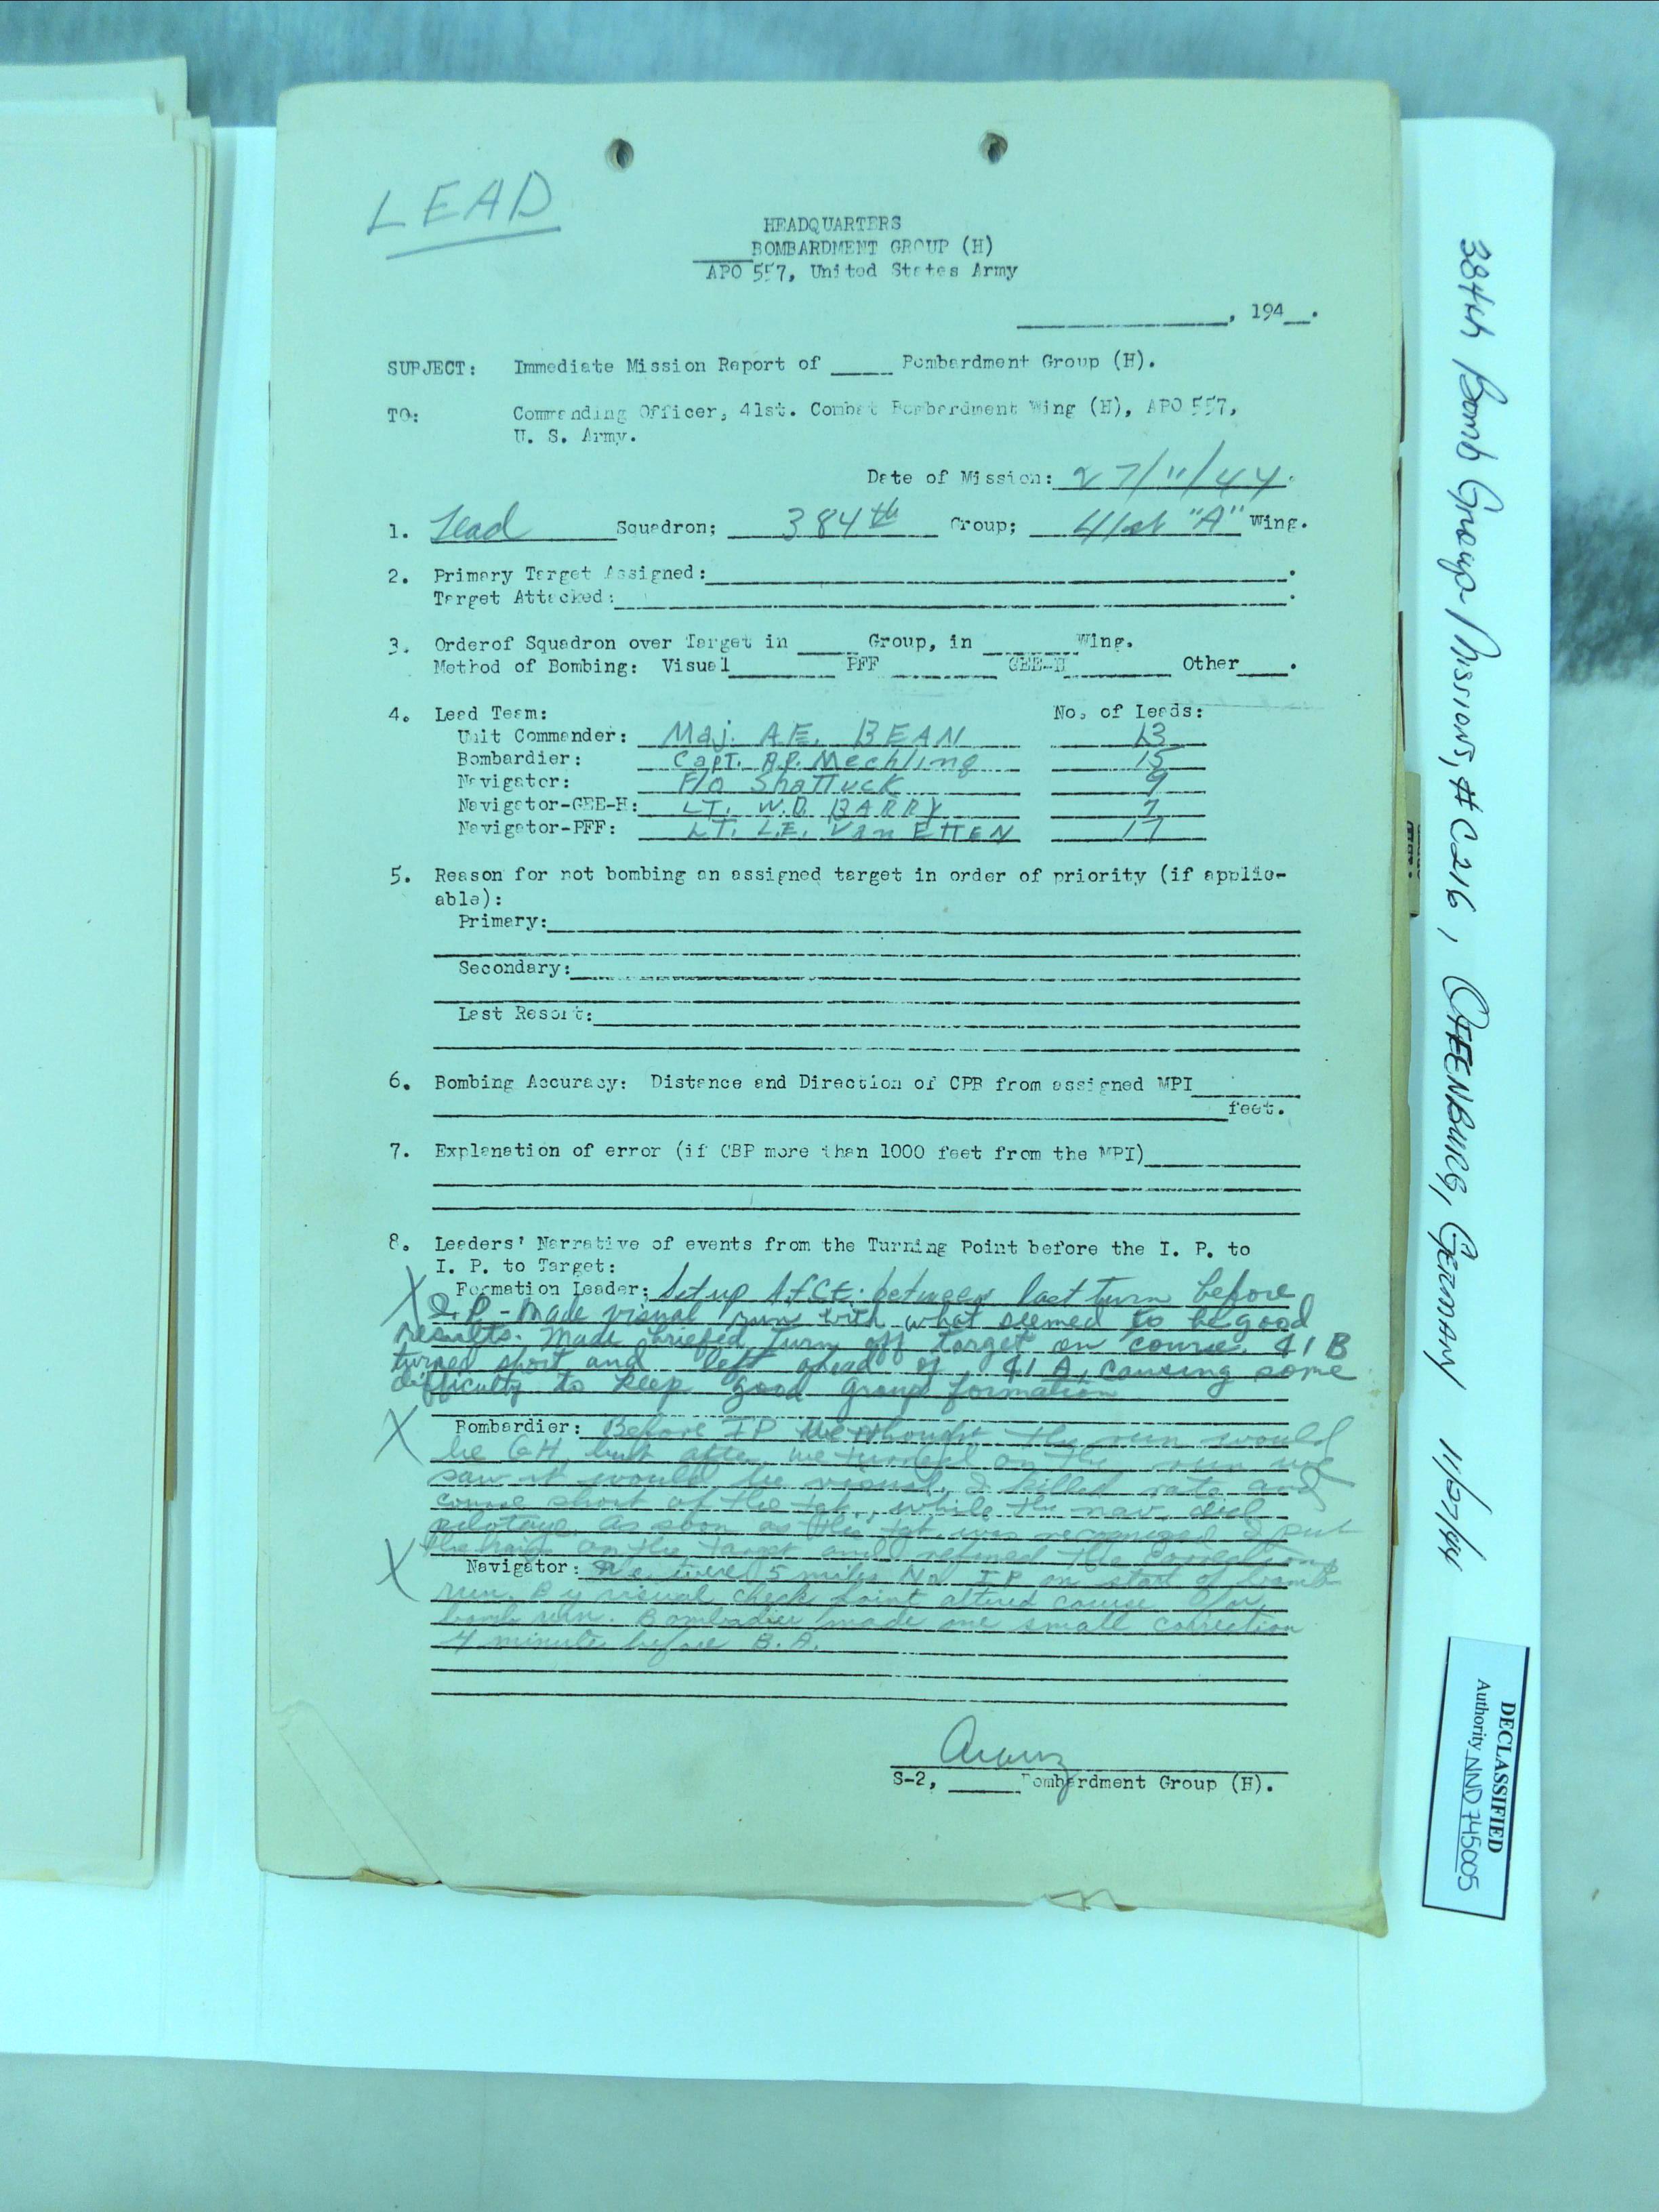 LEAD
HEADQUARTERS
____BOMBARDMENT GROUP (H)
APO 557, United States Army
____________, 194__.
SUBJECT: Immediate Mission Report of ____ Bombardment Group (H).
TO: Commanding Officer, 41st. Combat Bombardment Wing (H), APO 557,
U. S. Army.
Date of Mission: 27/11/44.
1. Lead Squadron; 384th Group; 41st "A" Wing.
2. Primary Target Assigned:____________.
Target Attacked:____________.
3. Orderof Squadron over Target in ____ Group, in ____ Wing.
Method of Bombing: Visual____ PFF ____ GEE-H____ Other____.
4. Lead Team: No. of Leads:
Unit Commander: Maj. A.E. BEAN 13
Bombardier: Capt. A.P. Mechling 15
Navigator: F/O Shattuck 9
Navigator-GEE-H: LT. W.D. BARRY 7
Navigator-PFF: LT. L.E. Van ETTEN 17
5. Reason for not bombing an assigned target in order of priority (if applic-
able):
Primary:____________
Secondary:____________
Last Resort:____________
6. Bombing Accuracy: Distance and Direction of CPB from assigned MPI____
____________feet.
7. Explanation of error (if CBP more than 1000 feet from the MPI)____
8. Leaders' Narrative of events from the Turning Point before the I. P. to
I. P. to Target:
X Formation Leader: Set up A.F.C.E. between last turn before
I.P. - Made visual run with what seemed to be good
results. Made briefed turn off target on course. 41 B
turned short and left ahead of 41 A, causing some
difficulty to keep good group formation
X Bombardier: Before IP we thought the run would
be GH but after we turned on the run we
saw it would be visual. I killed rate and
course short of the tgt, while the nav. did
pilotage. As soon as the tgt. was recognized I put
the hairs on the target and refined the corrections
X Navigator: We were 5 miles No. IP on start of bomb
run. By visual check point altered course for
bomb run. Bombardier made one small correction
4 minutes before B.A.
S-2, ____ Bombardment Group (H).
384th Bomb Group Missions, #C216, OFFENBURG, GERMANY 11/27/44
DECLASSIFIED
Authority NND 745005